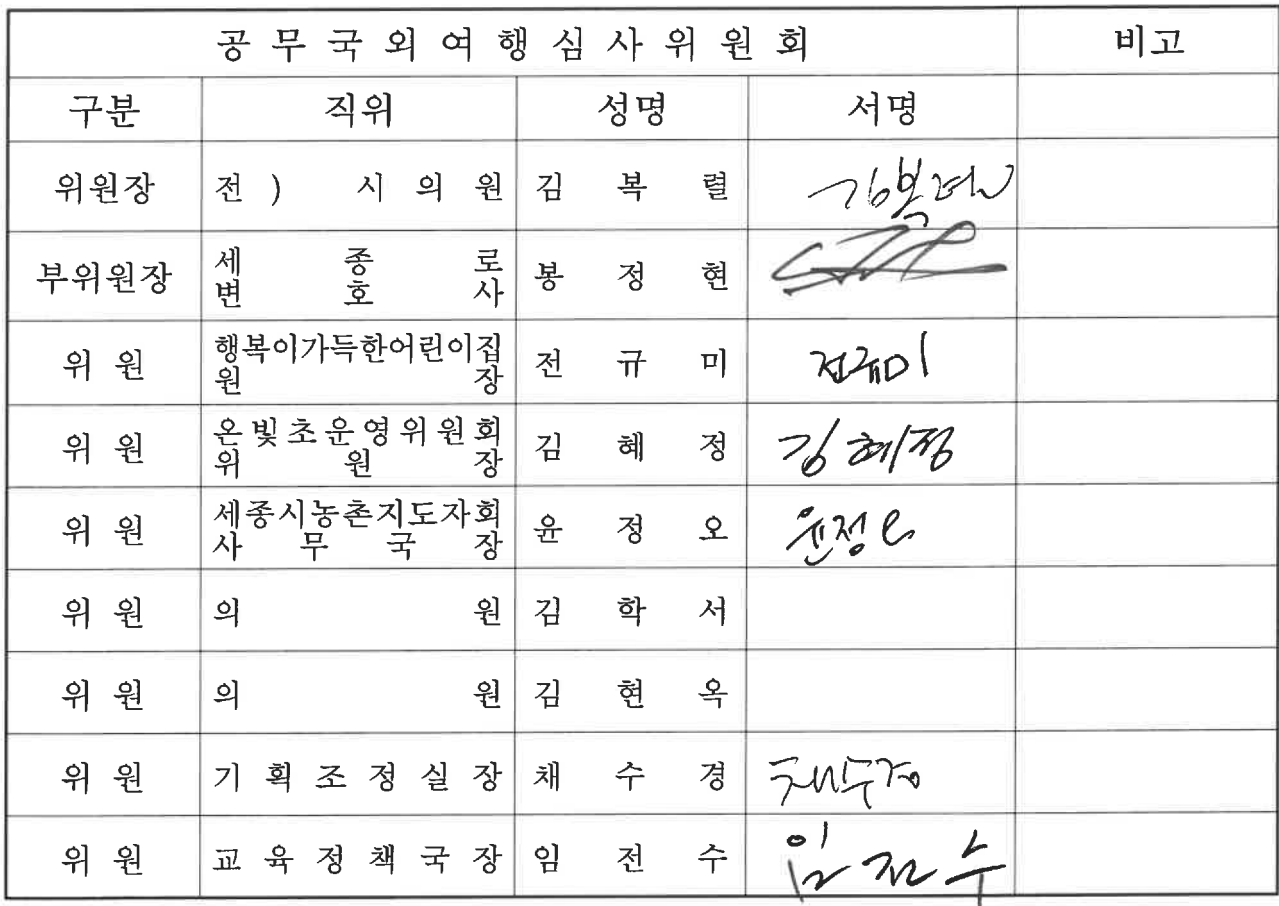 공 무 국 외 여 행 심 사 위 원 회 비고
구분 직위 성명 서명
위원장 전 ) 시 의 원 김 복 렬 김복렬
부위원장 세 종 로 봉 정 현
변 호 사
위 원 행복이가득한어린이집 전 규 미 전규미
원 장
위 원 온빛초운영위원회 김 혜 정 김혜정
위 원 장
위 원 세종시농촌지도자회 윤 정 오 윤정오
사 무 국 장
위 원 의 원 김 학 서
위 원 의 원 김 현 옥
위 원 기 획 조 정 실 장 채 수 경 채수경
위 원 교 육 정 책 국 장 임 전 수 임전수